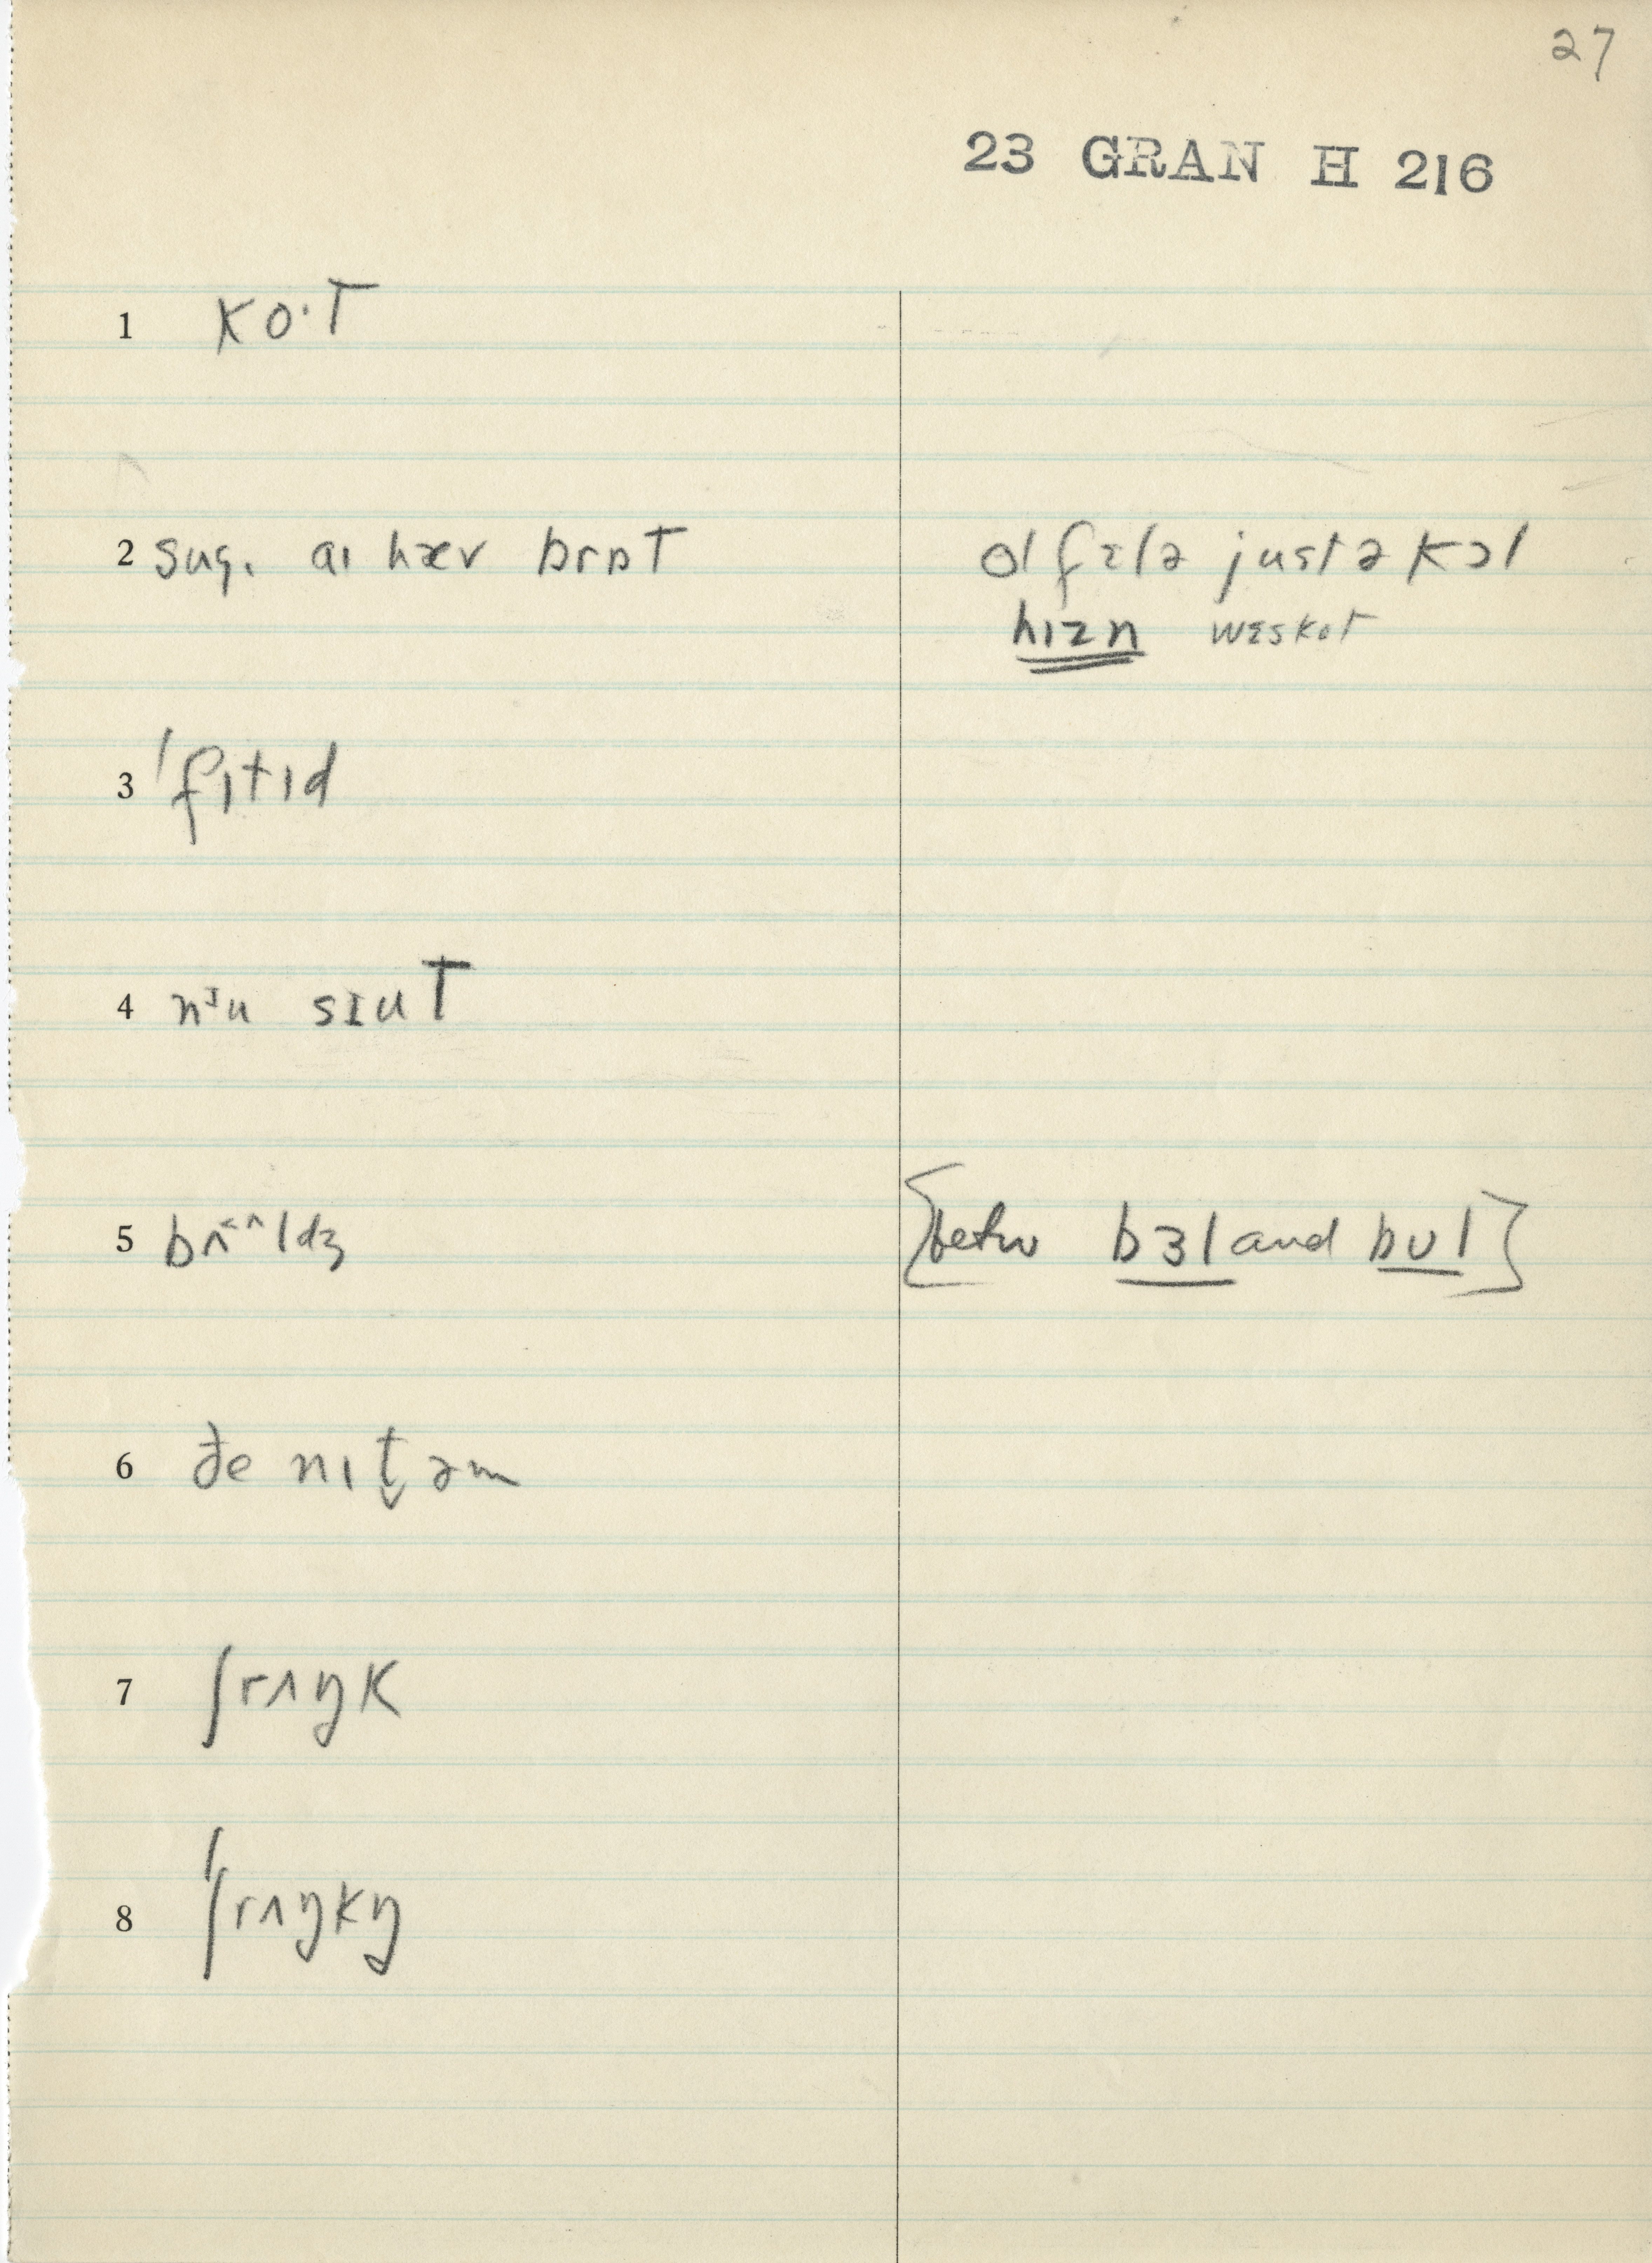 27
23 GRAN H 216
1 ko·t
2 sug. aɪ hæv brɒt
ol fɛlə justə kɔl
hɪzn wɛskət
3 ˈfɪtɪd
4 nᴵu sɪut
5 bʌ˂^ldʒ
[betw bɜl and bʊl]
6 ðe nɪt̬əm
7 ʃrʌŋk
8 ˈʃrʌŋkŋ